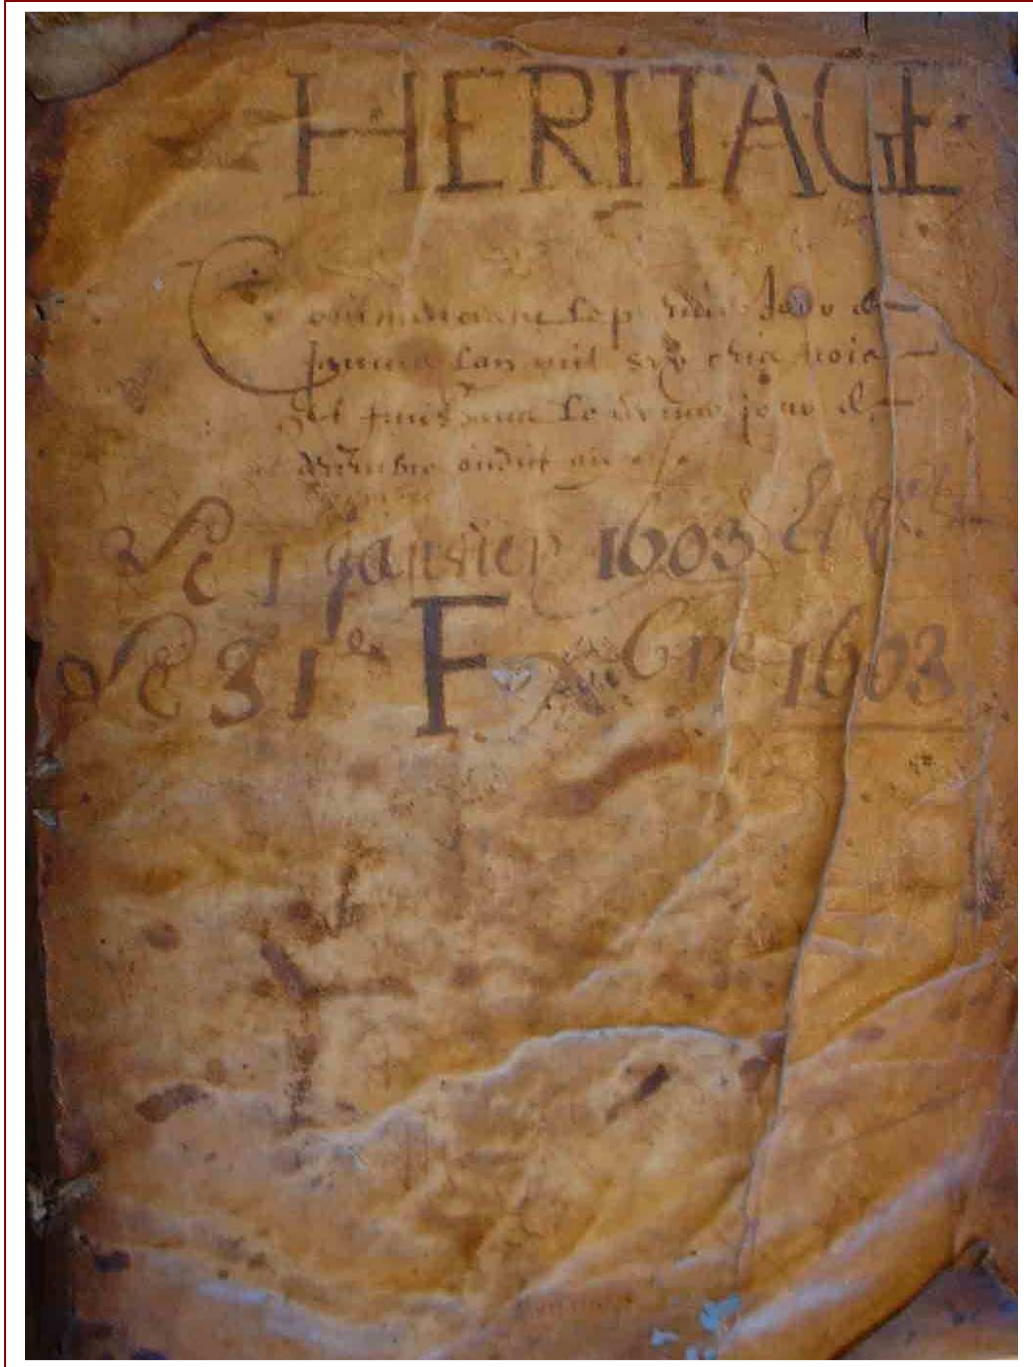 HERITAGE
Commencant le premier Jour de
Janvier Lan mil six cens trois
et finissant le dernier jour de
decembre oudit an
Le 1 Janvier 1603 Et
Le 31e
F
Xbre 1603